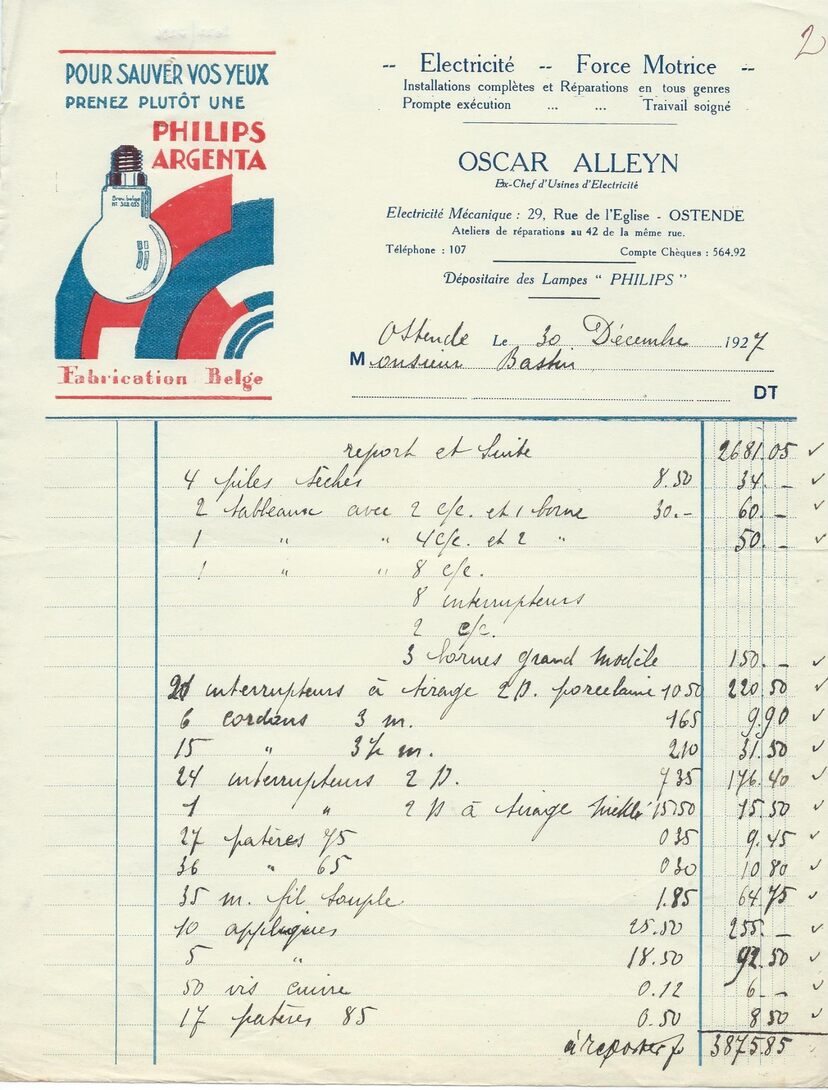 2
POUR SAUVER VOS YEUX
PRENEZ PLUTÔT UNE
PHILIPS
ARGENTA
Brev. belge
Nº 328.055
Fabrication Belge
-- Electricité -- Force Motrice --
Installations complètes et Réparations en tous genres
Prompte exécution ... ... Traivail soigné
OSCAR ALLEYN
Ex-Chef d'Usines d'Electricité
Electricité Mécanique : 29, Rue de l'Eglise - OSTENDE
Ateliers de réparations au 42 de la même rue.
Téléphone : 107 Compte Chèques : 564.92
Dépositaire des Lampes “ PHILIPS ”
Ostende Le 30 Décembre 1927
Monsieur Bastin
DT
report et suite 2681.05
4 piles sèches 8.50 34.-
2 tableaux avec 2 c/c. et 1 borne 30.- 60.-
1 " " 4 c/c. et 2 " 50.-
1 " " 8 c/c.
8 interrupteurs
2 c/c.
3 bornes grand modèle 150.-
21 interrupteurs à tirage 2 P. porcelaine 10 50 220 50
6 cordons 3 m. 165 9.90
15 " 3½ m. 210 31.50
24 interrupteurs 2 P. 7 35 176.40
1 " 2 P à tirage nickelé 15.50 15.50
27 patères 75 0 35 9.45
36 " 65 0 30 10 80
35 m. fil souple 1.85 64.75
10 appliques 25.50 255.-
5 " 18.50 92.50
50 vis cuivre 0.12 6.-
17 patères 85 0.50 8 50
à reporter fr 3875.85